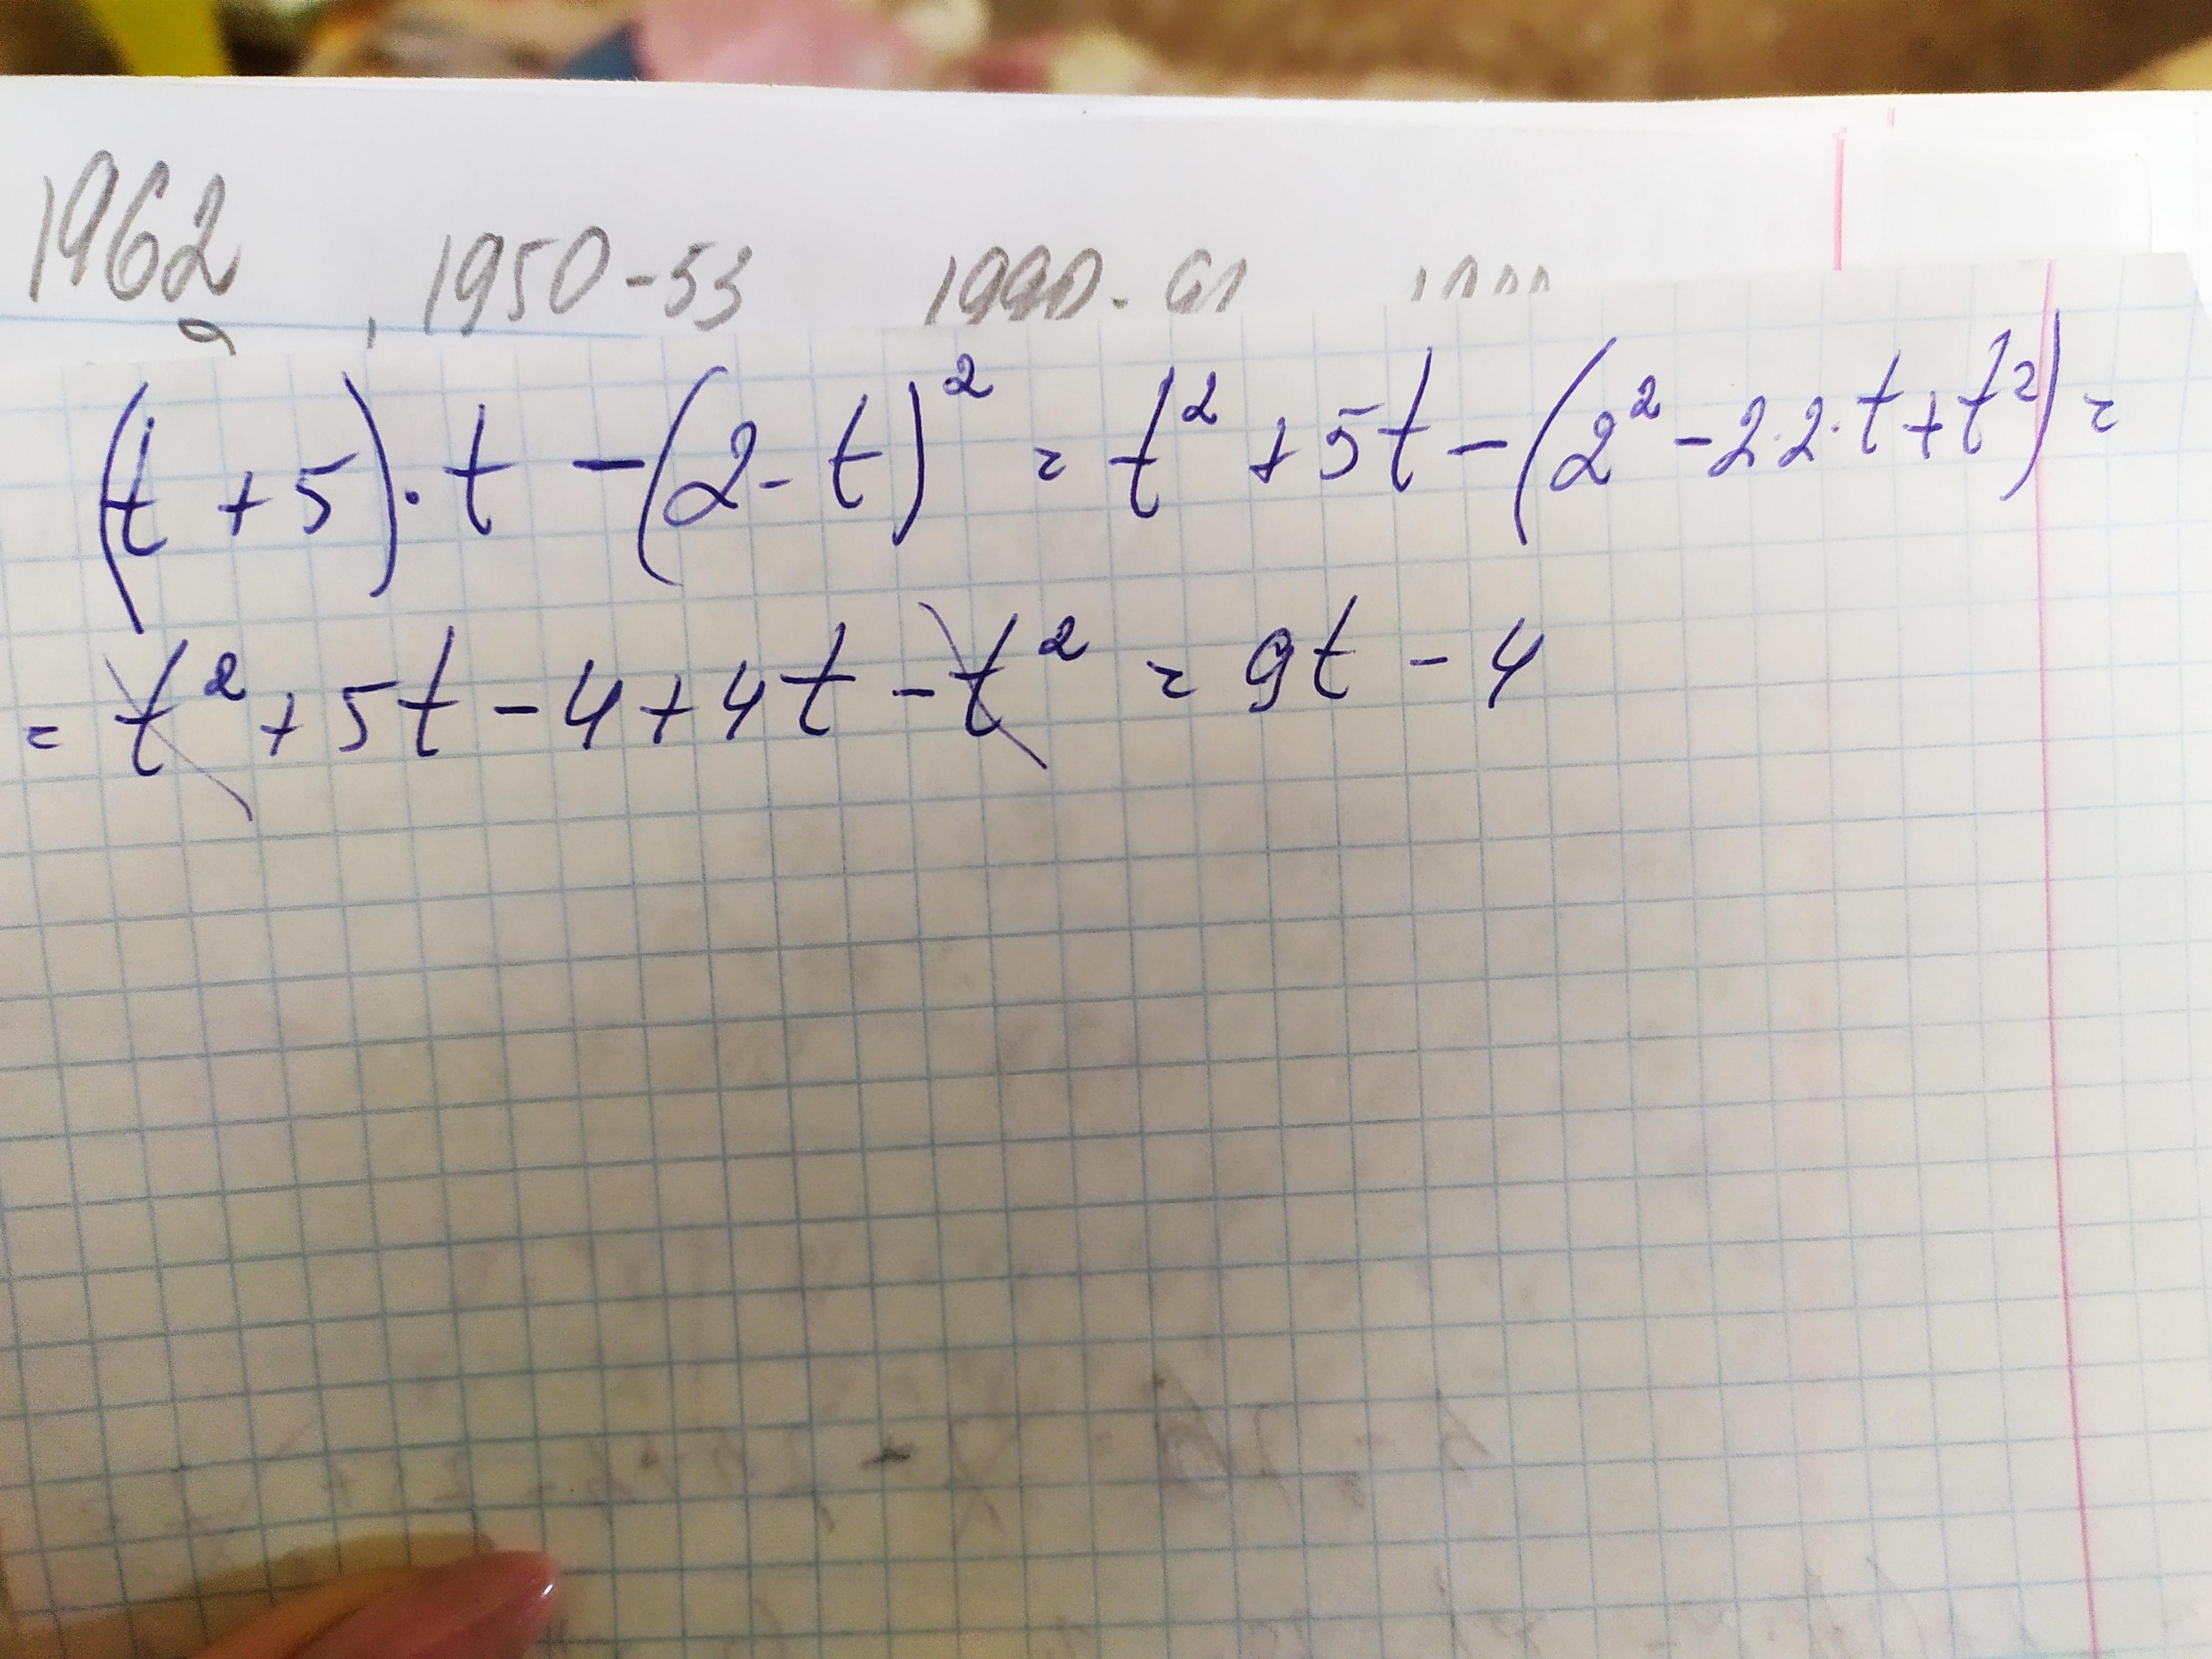 1962 , 1950-53 1990-91
(t+5)·t-(2-t)² = t²+5t-(2²-2·2·t+t²)=
= t²+5t-4+4t-t² = 9t-4